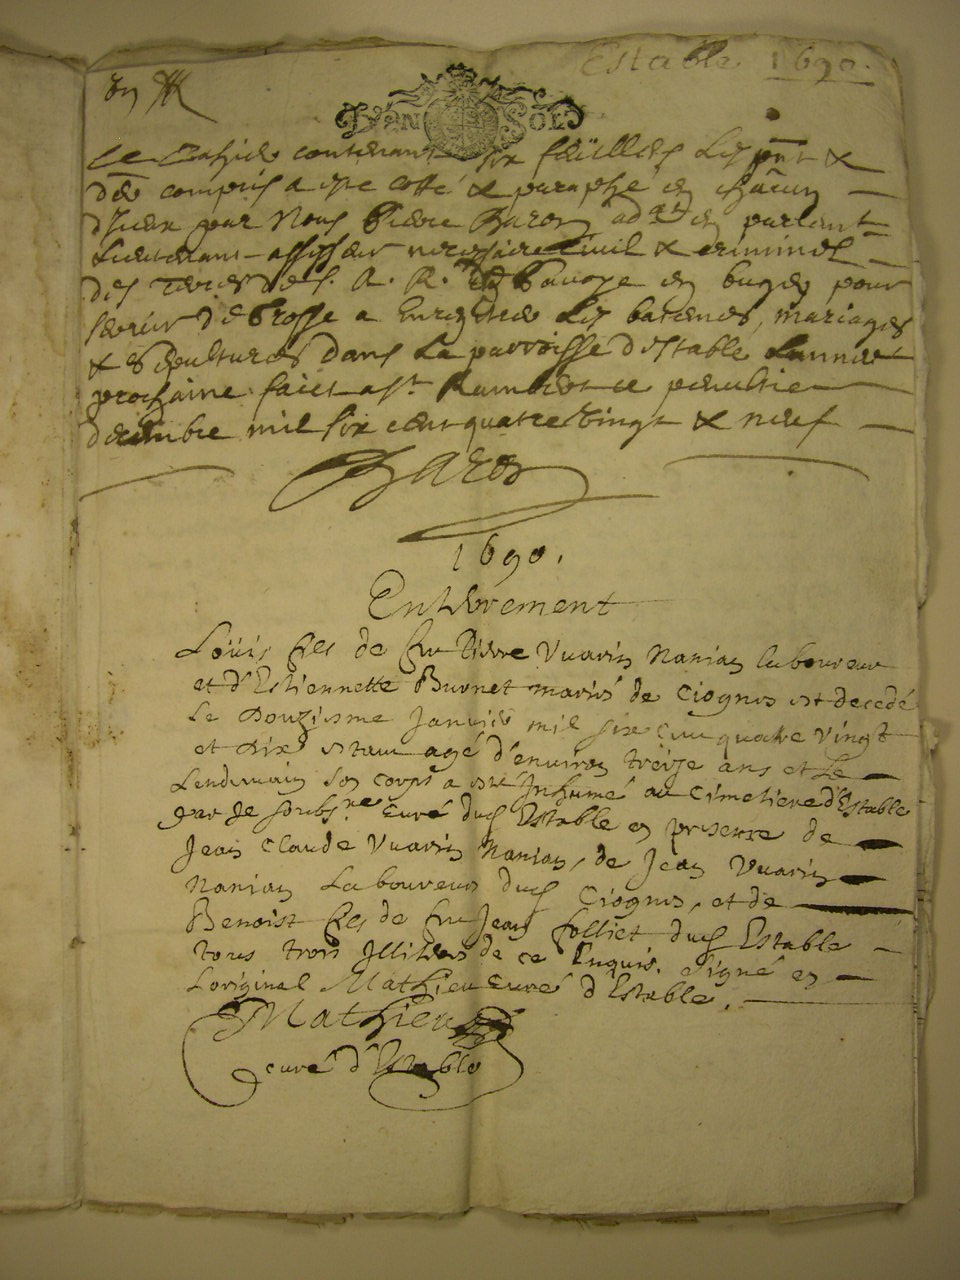 Estable 1690.
DEN SOL
Ce Cahier contenant six feüilles Les pnt &
der compris a este cotté & paraphé en chacun
d'Iceux par Nous Pierre Baron adat en parlant
Lieutenant assesseur necessaire Civil & criminel
des Terres de S. A. R. de Savoye en bugey pour
servir de a Enregistrer Les batemes, mariages
& sepultures dans La parroisse d'Estable L'annee
prochaine faict a St Rambert ce penultie
decembre mil six cent quatre Vingt & neuf
Baron
1690.
Enterrement
Loüis fils de feu Pierre Vuarin Nanian laboureur
et d'Estiennette Burnet mariés de Ciognes est decedé
Le Douziesme Janvier mil six cent quatre vingt
et dix estant agé d'environ treize ans et Le
Lendemain son corps a esté Inhumé au Cimetiere d'Estable
par Je soubs.né Curé dud Estable en presence de
Jean Claude Vuarin Nanian, de Jean Vuarin
Nanian Laboureurs dud Ciognes, et de
Benoist fils de feu Jean folliet dud Estable
tous trois Illiteres de ce Enquis. signé en
Loriginel Mathieu curé d'Estable.
Mathieu
curé d'Estable